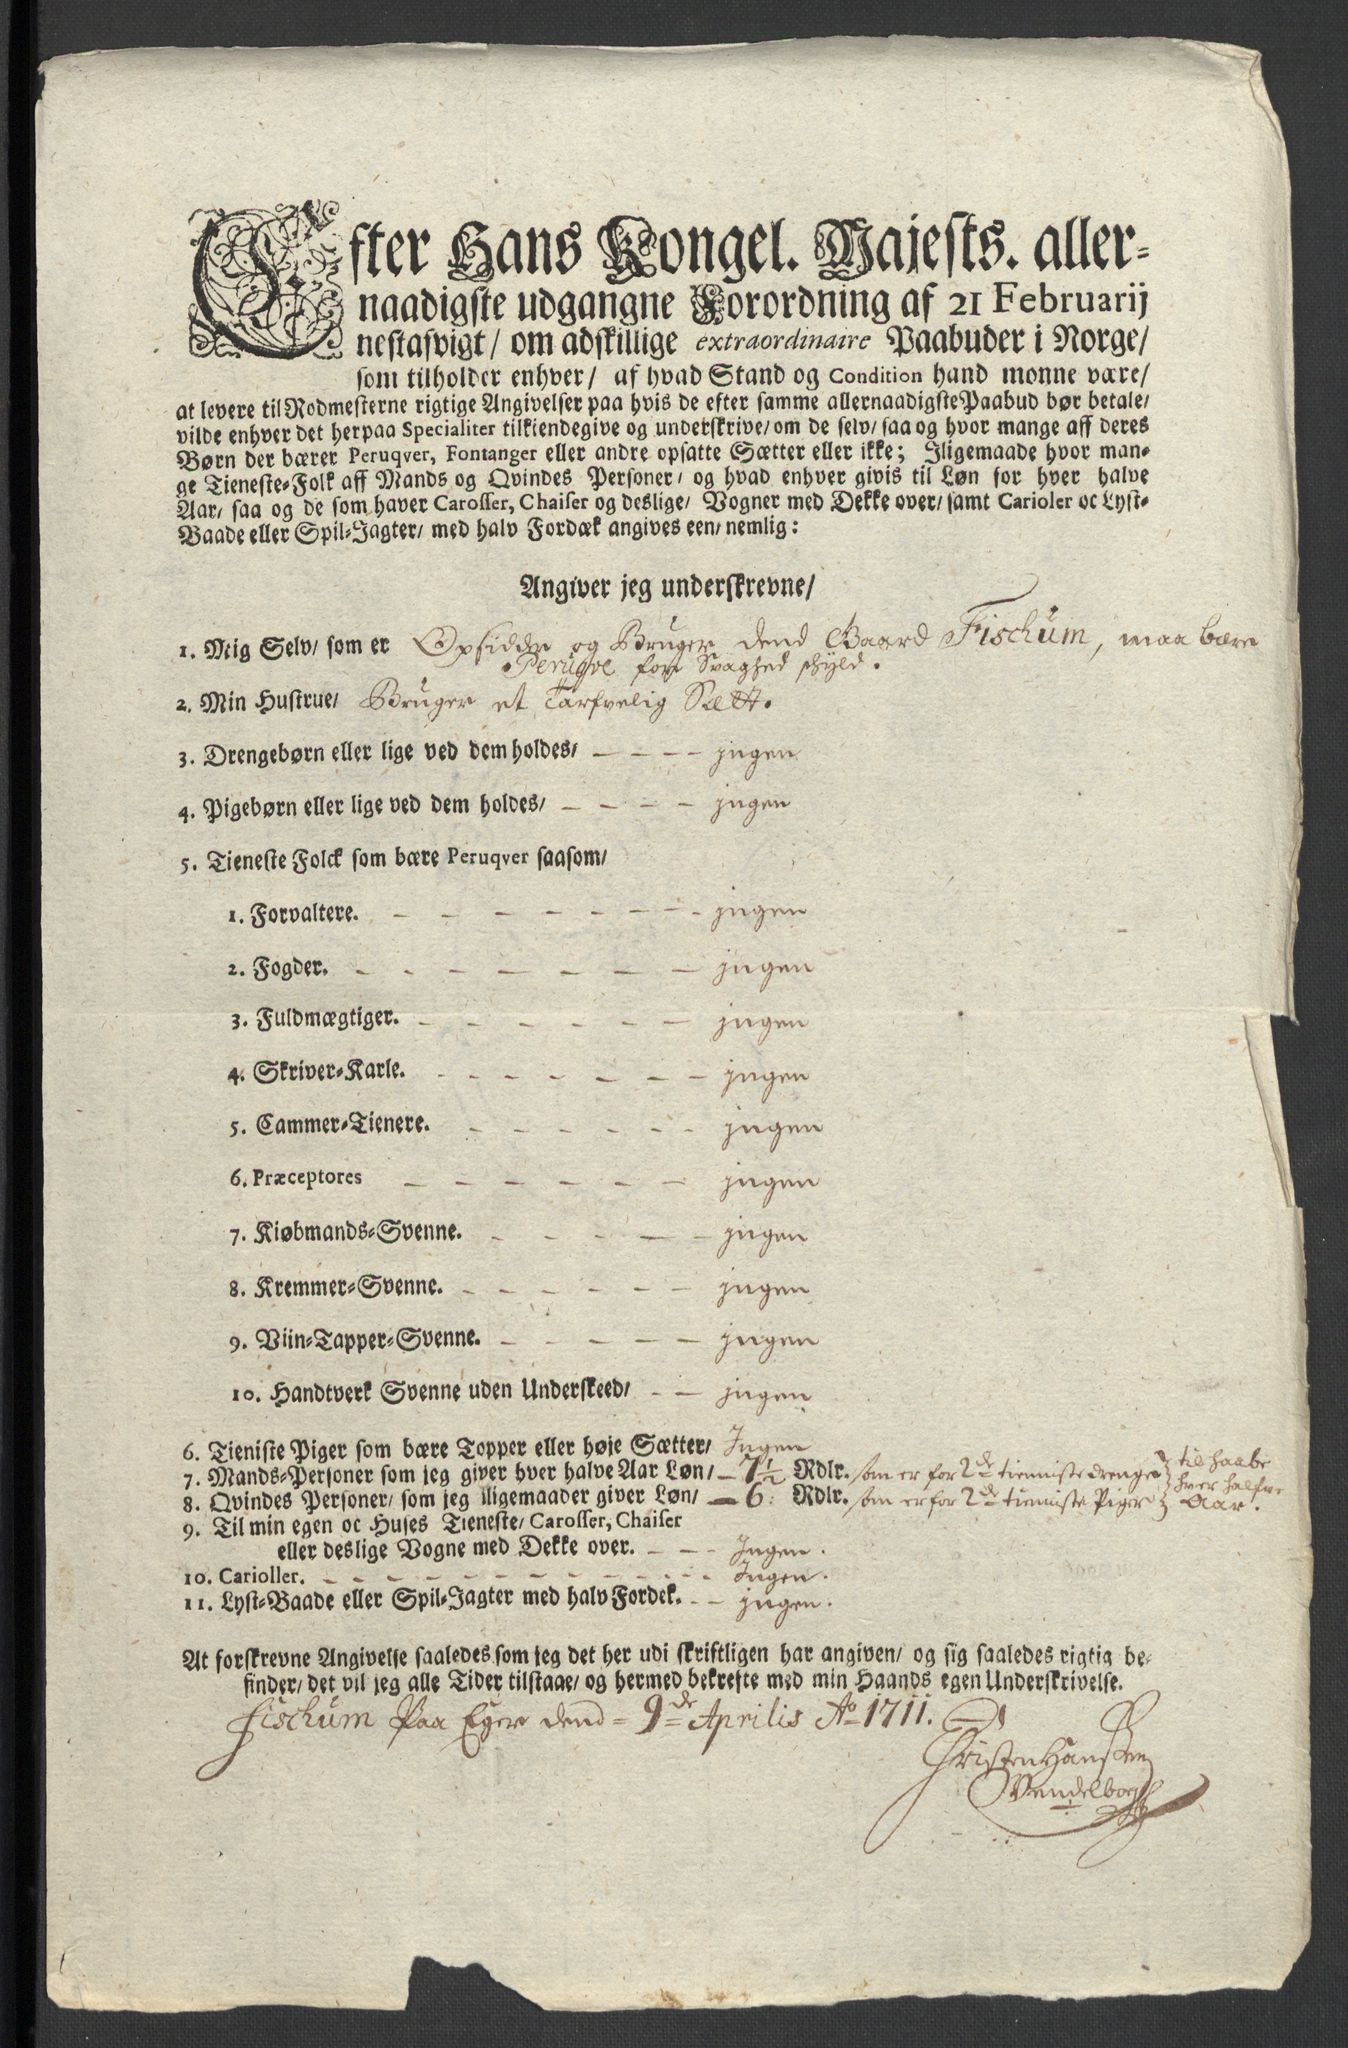 Efter Hans Kongel. Majests. aller-
naadigste udgangne Forordning af 21 Februarij
nestafvigt/ om adskillige extraordinaire Paabuder i Norge/
som tilholder enhver/ af hvad Stand og Condition hand monne være/
at levere til Rodmesterne rigtige Angivelser paa hvis de efter samme allernaadigste Paabud bør betale/
vilde enhver det herpaa Specialiter tilkiendegive og underskrive/ om de selv/ saa og hvor mange aff deres
Børn der bærer Peruqver, Fontanger eller andre opsatte Sætter eller ikke; Iligemaade hvor man-
ge Tieneste-Folk aff Mands og Qvindes Personer/ og hvad enhver givis til Løn for hver halve
Aar/ saa og de som haver Carosser, Chaiser og deslige/ Vogner med Dekke over/ samt Carioler oc Lyst-
Baade eller Spil-Jagter/ med halv Fordæk angives een/ nemlig:
Angiver jeg underskrevne/
1. Mig Selv/ som er Opsidder og Bruger dend Gaard Fischum, maa bære
Peruqve for Svaghed schyld.
2. Min Hustrue/ Bruger et Tarfvelig Sætt.
3. Drengebørn eller lige ved dem holdes/ - - - - jngen
4. Pigebørn eller lige ved dem holdes/ - - - - jngen
5. Tieneste Folck som bære Peruqver saasom/
1. Forvaltere. - - - - - - - jngen
2. Fogder. - - - - - - - jngen
3. Fuldmægtiger. - - - - - - jngen
4. Skriver-Karle. - - - - - - - jngen
5. Cammer-Tienere. - - - - - - jngen
6. Præceptores - - - - - - jngen
7. Kiøbmands-Svenne. - - - - - jngen
8. Kremmer-Svenne. - - - - - - jngen
9. Viin-Tapper-Svenne. - - - - - jngen
10. Handtverk Svenne uden Underskeed/ - - jngen
6. Tieniste Piger som bære Topper eller høje Sætter/ Ingen
7. Mands-Personer som jeg giver hver halve Aar Løn/ - 7½ Rdlr. som er for 2de tienniste drenge til haabe
8. Qvindes Personer/ som jeg iligemaader giver Løn/ - 6: Rdlr. som er for 2de tienniste Piger hver halfve Aar.
9. Til min egen oc Huses Tieneste/ Carosser, Chaiser
eller deslige Vogne med Dekke over. - - - Ingen.
10. Carioller. - - - - - - - - - - - Ingen.
11. Lyst-Baade eller Spil-Jagter med halv Fordek. - - jngen.
At forskrevne Angivelse saaledes som jeg det her udi skriftligen har angiven/ og sig saaledes rigtig be-
finder/ det vil jeg alle Tider tilstaae/ og hermed bekrefte med min Haands egen Underskrivelse.
Fischum Paa Eger dend 9de Aprilis Ao 1711.
Christen Hanssen
Wendelboe